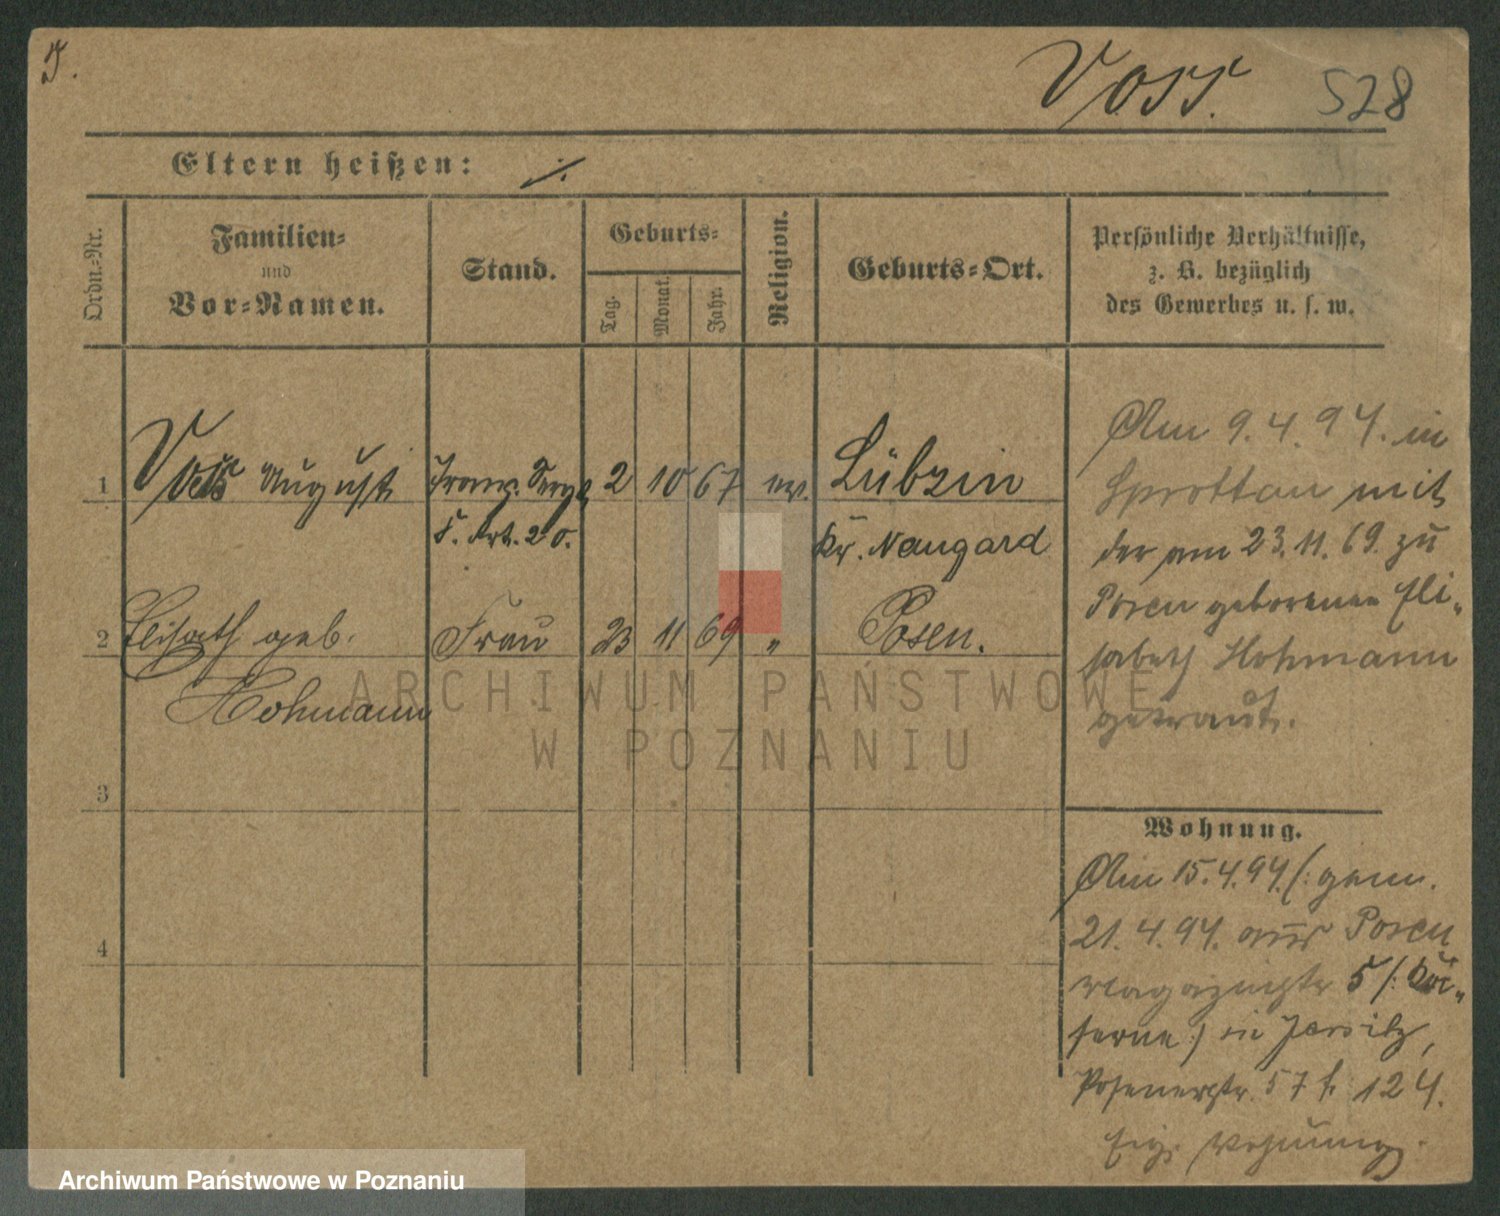 J.
Voss.
528
Eltern heißen: ./.
Ordn.-Nr.
Familien-
und
Vor-Namen.
Stand.
Geburts-
Tag.
Monat.
Jahr.
Religion.
Geburts-Ort.
Persönliche Verhältnisse,
z. B. bezüglich
des Gewerbes u. s. w.
1 Voss August Serg. 2 10 67 ev. Lübzin
F. Art. 20. Kr. Naugard
2 Elisabeth geb. Frau 23 11 69 „ Posen.
Hohmann
3
4
Am 9.4.94. in
Sprottau mit
der am 23.11.69. zu
Posen geborenen Eli-
sabeth Hohmann
getraut.
Wohnung.
Am 15.4.94 (: gem.
21.4.94. aus Posen
Magazinstr 5 /: Ka-
serne :) in Jersitz,
Posenerstr. 57 f. 124.
Eig. Wohnung.
ARCHIWUM PAŃSTWOWE
W POZNANIU
Archiwum Państwowe w Poznaniu